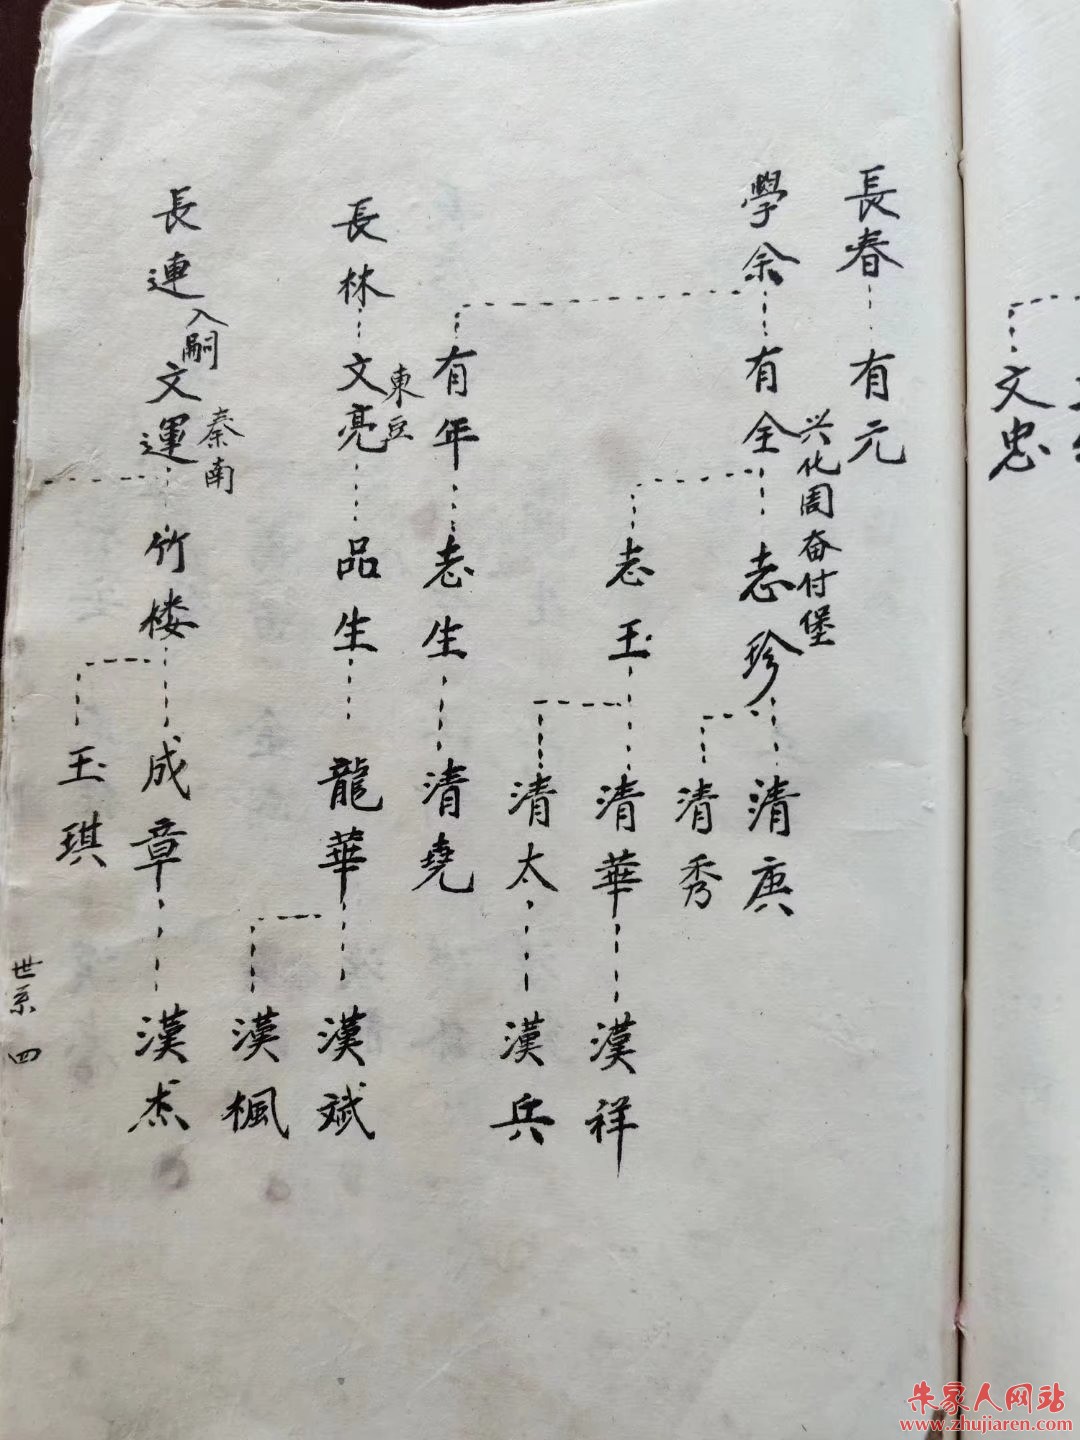 文忠
長春
有元
學余
有全
兴化周奋付堡
志珍
清庚
清秀
志玉
清華
漢祥
清太
漢兵
有年
志生
清堯
長林
文亮
東豆
品生
龍華
漢斌
漢楓
長連
入嗣
文運
秦南
竹楼
成章
漢杰
玉琪
世系 四
朱家人网站
www.zhujiaren.com